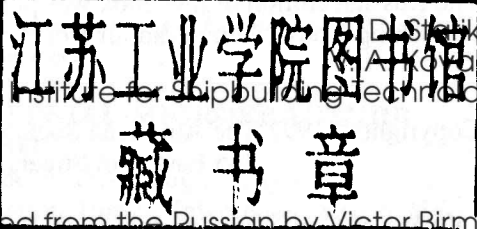 D. Stalik
江苏工业学院图书馆
A. Kova
Institute for Shipbuilding Technolo
藏书章
ed from the Russian by Victor Birm